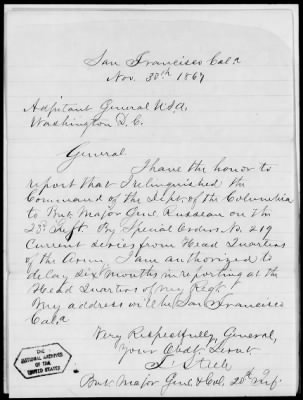 San Francisco Cala
Nov. 30th 1867
Adjutant General U.S.A.
Washington D.C.
General
I have the honor to
report that I relinquished the
Command of the Dept. of the Columbia
to Bvt Major Genl Rousseau on the
23d Inst. By Special Orders No. 219
Current series from Head Quarters
of the Army. I am authorized to
delay six months in reporting at the
Head Quarters of my Regt
My address will be San Francisco
Cala
Very Respectfully, General,
Your Obdt. Servt
Bvt Major Genl & Col. 20th Inf.
THE
NATIONAL ARCHIVES
OF THE
UNITED STATES